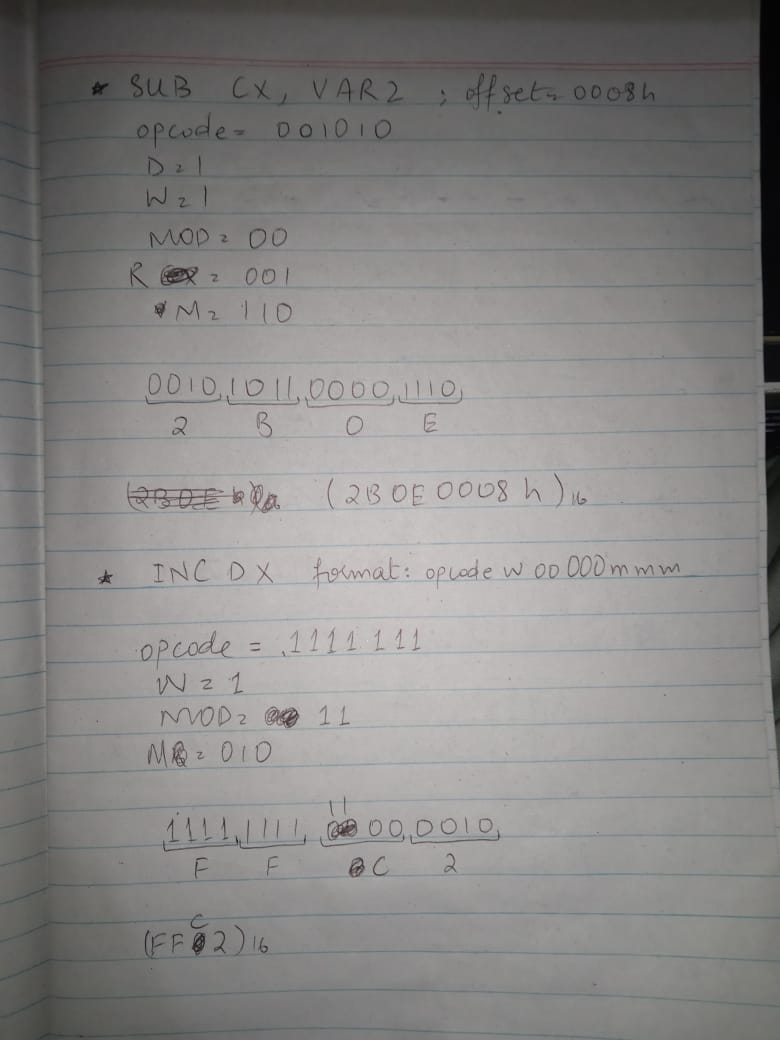 * SUB CX, VAR2 ; offset = 0008h
opcode = 001010
D = 1
W = 1
MOD = 00
R = 001
M = 110
0010 1011 0000 1110
2 B 0 E
(2B0E 0008 h)16
* INC DX format: opcode w oo 000 m m m
opcode = 1111 111
W = 1
MOD = 11
M = 010
11
1111 1111 00 0010
F F C 2
C
(FF 2)16